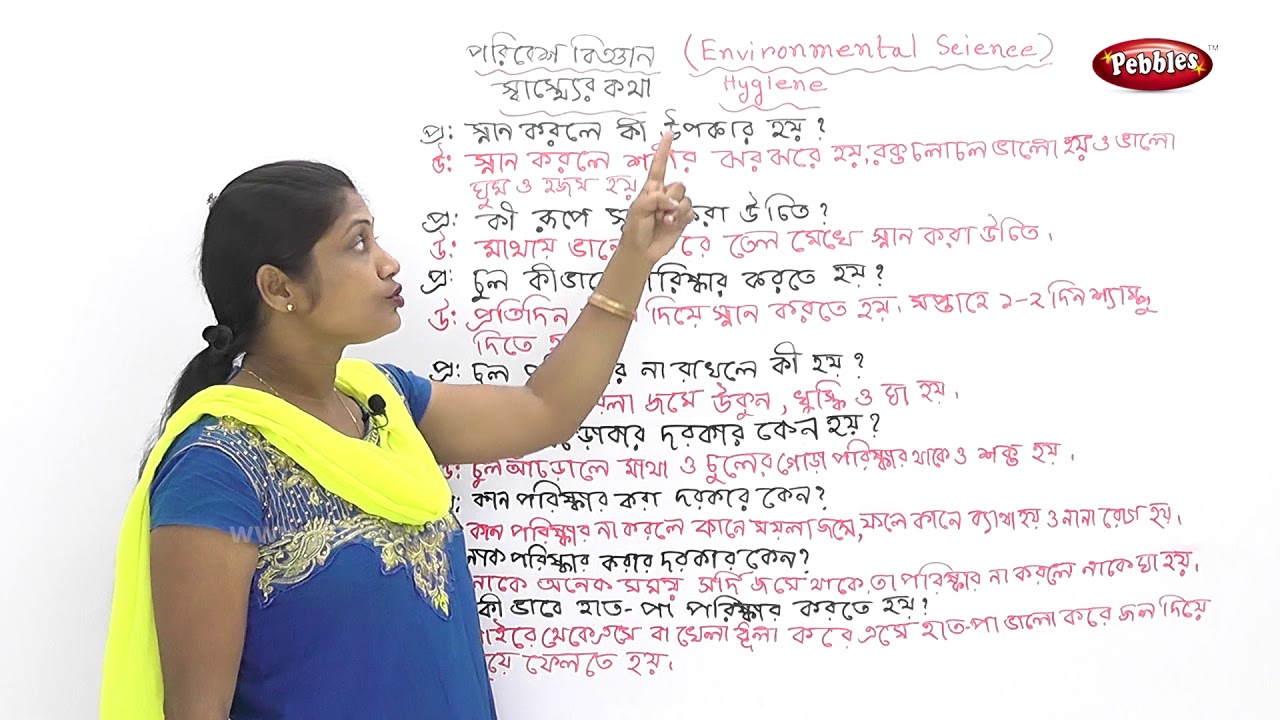 পরিবেশ বিজ্ঞান (Environmental Science)
Pebbles TM
স্বাস্থ্যের কথা Hygiene
প্র: স্নান করলে কী উপকার হয়?
উ: স্নান করলে শরীর ঝরঝরে হয়, রক্ত চলাচল ভালো হয় ও ভালো
ঘুম ও হজম হয়
প্র: কী রূপে করা উচিত?
উ: মাথায় তেল মেখে স্নান করা উচিত।
প্র: চুল কীভাবে পরিষ্কার করতে হয়?
উ: প্রতিদিন দিয়ে স্নান করতে হয়। সপ্তাহে ১-২ দিন শ্যাম্পু
দিতে
প্র: চুল না রাখলে কী হয়?
জমে উকুন, খুস্কি ও ঘা হয়।
দরকার কেন হয়?
চুল আঁচড়ালে মাথা ও চুলের গোড়া পরিষ্কার থাকে ও শক্ত হয়।
কান পরিষ্কার করা দরকার কেন?
কান পরিষ্কার না করলে কানে ময়লা জমে, ফলে কানে ব্যাথা হয় ও নানা রোগ হয়।
নাক পরিষ্কার করার দরকার কেন?
নাকে অনেক সময় সর্দি জমে থাকে, তা পরিষ্কার না করলে নাকে ঘা হয়।
কী ভাবে হাত-পা পরিষ্কার করতে হয়?
থেকে এসে বা খেলা ধূলা করে এসে হাত-পা ভালো করে জল দিয়ে
ফেলতে হয়।